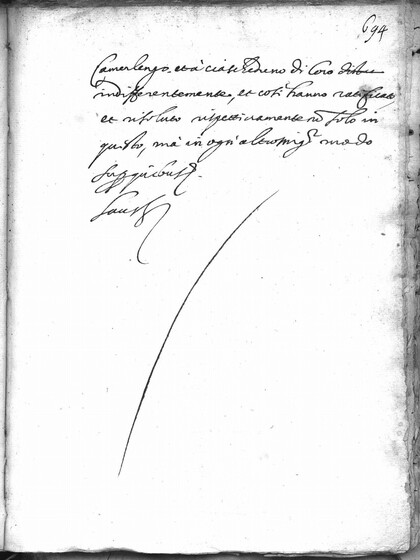 694
Camerlengo, et à ciascheduno di loro
indifferentemente, et così hanno ratificato
et risoluto rispettivamente nõ solo in
questo, mà in ogni altro miglr modo